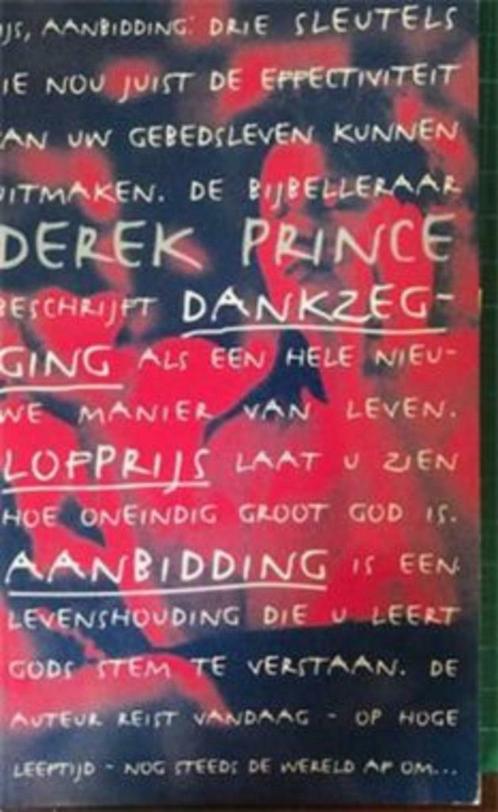 IJS, AANBIDDING: DRIE SLEUTELS
IE NOU JUIST DE EFFECTIVITEIT
AN UW GEBEDSLEVEN KUNNEN
UITMAKEN. DE BIJBELLERAAR
DEREK PRINCE
BESCHRIJFT DANKZEG-
GING ALS EEN HELE NIEU-
WE MANIER VAN LEVEN.
LOFPRIJS LAAT U ZIEN
HOE ONEINDIG GROOT GOD IS.
AANBIDDING IS EEN
LEVENSHOUDING DIE U LEERT
GODS STEM TE VERSTAAN. DE
AUTEUR REIST VANDAAG - OP HOGE
LEEFTIJD - NOG STEEDS DE WERELD AF OM...